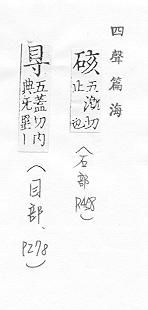 四聲篇海
硋
五溉切
止也
(石部
P458)
㝵
五蓋切內
典牙單一
(目部、
P278)